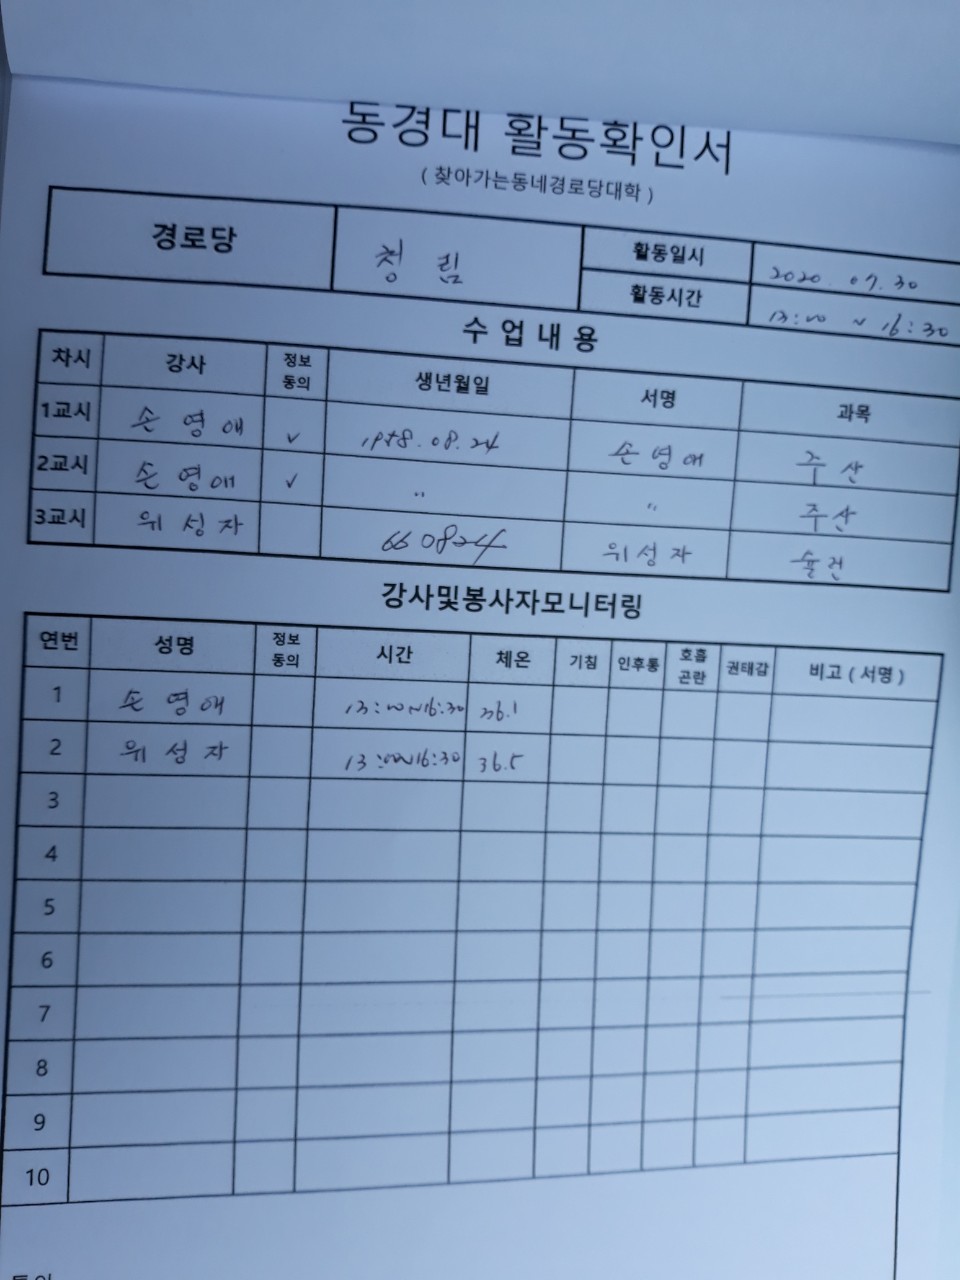 동경대 활동확인서
( 찾아가는동네경로당대학 )
경로당 청림 활동일시 2020. 07. 30
활동시간 13:00 ~ 16:30
수업내용
차시 강사 정보동의 생년월일 서명 과목
1교시 손영애 ✓ 1958.08.24 손영애 주산
2교시 손영애 ✓ 〃 〃 주산
3교시 위성자 660824 위성자 웰건
강사및봉사자모니터링
연번 성명 정보동의 시간 체온 기침 인후통 호흡곤란 권태감 비고 ( 서명 )
1 손영애 13:00~16:30 36.1
2 위성자 13:00~16:30 36.5
3
4
5
6
7
8
9
10